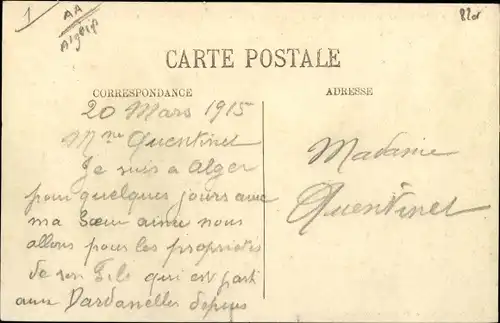 1
AA
Algérie
CARTE POSTALE
CORRESPONDANCE
ADRESSE
20 Mars 1915
Mme Quentinet
Je suis a Alger
pour quelques jours avec
ma Sœur ainée nous
allons pour les propriétés
de son Fils qui est parti
aux Dardanelles depuis
Madame
Quentinet